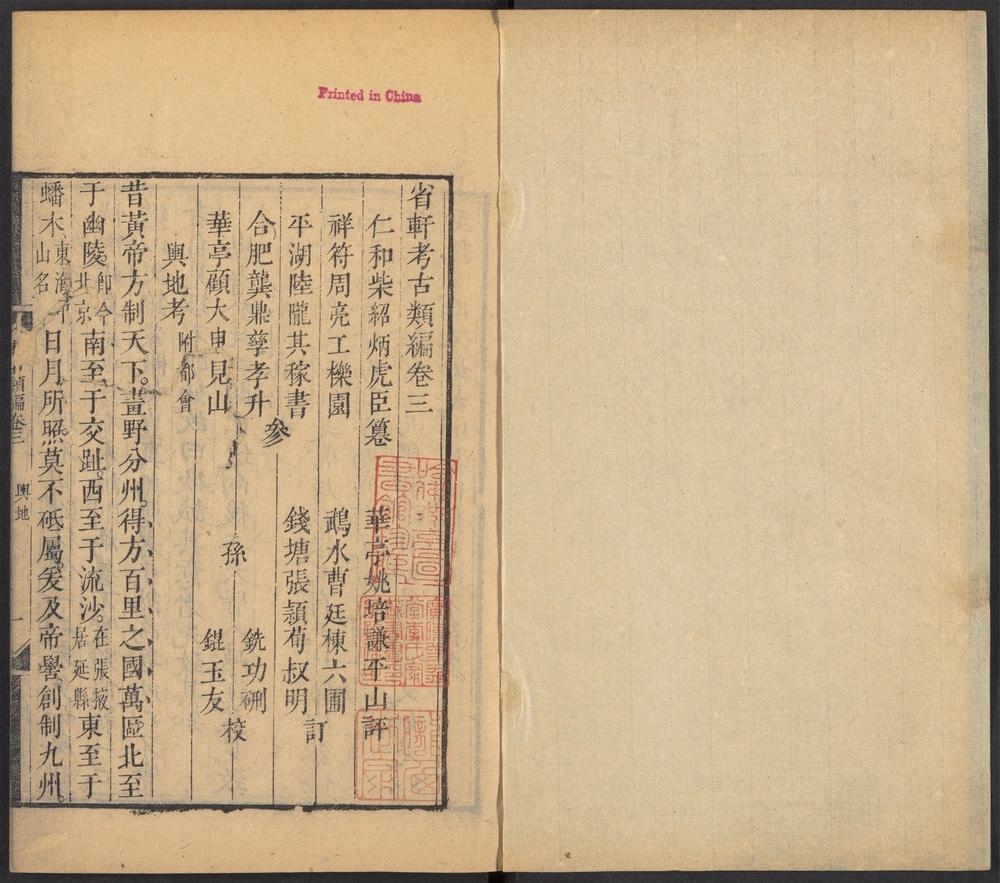 Printed in China
省軒考古類編卷三
仁和柴紹炳虎臣纂 華亭姚培謙平山評
祥符周亮工櫟園 鵡水曹廷棟六圃
平湖陸隴其稼書 錢塘張穎荀叔明 訂
合肥龔鼎孳孝升 參 銑功硎
華亭顧大申見山 孫 錕玉友 校
輿地考 附都會
昔黃帝方制天下。畫野分州。得方百里之國萬區北至
于幽陵。即今北京南至于交趾。西至于流沙。在張掖居延縣東至于
蟠木東海中山名日月所照。莫不砥屬。爰及帝嚳創制九州。
類編卷三 輿地 一